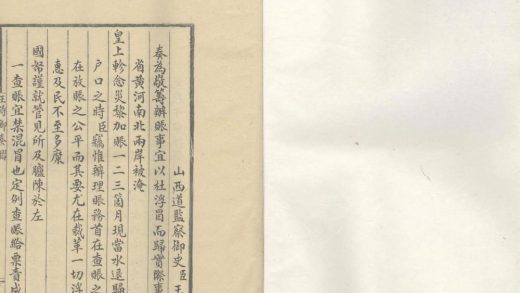 山西道監察御史臣王
奏為敬籌辦賑事宜以杜浮冒而歸實際事
省黃河南北兩岸被淹
皇上軫念災黎加賑一二三箇月現當水退歸
户口之時臣竊惟辦理賑務首在查賑之
在放賑之公平而其要尤在裁革一切浮
惠及民不至多糜
國帑謹就管見所及臚陳於左
一查賑宜禁混冒也定例查賑給票責成
王侍御奏